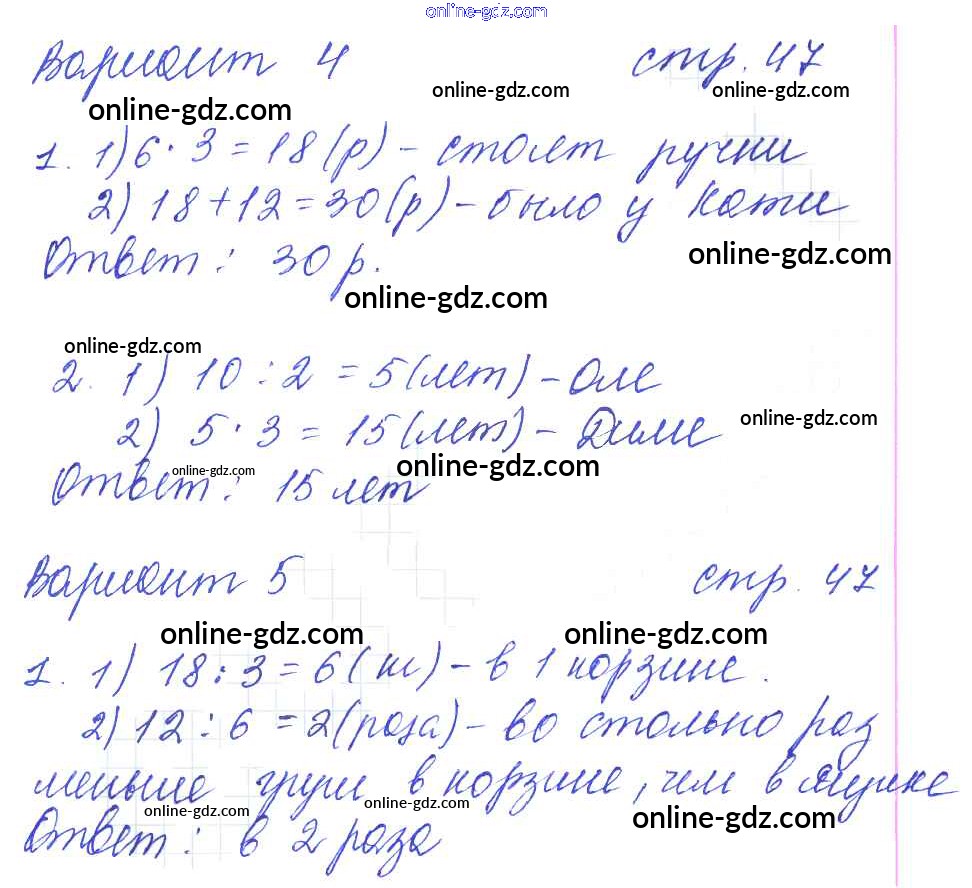 online-gdz.com
Вариант 4 стр. 47
online-gdz.com online-gdz.com online-gdz.com
1. 1) 6 · 3 = 18 (р) - стоят ручки
2) 18 + 12 = 30 (р) - было у Кати
online-gdz.com
Ответ: 30 р.
online-gdz.com
online-gdz.com
2. 1) 10 : 2 = 5 (лет) - Оле
online-gdz.com
2) 5 · 3 = 15 (лет) - Диме
online-gdz.com online-gdz.com
Ответ: 15 лет
Вариант 5 стр. 47
online-gdz.com online-gdz.com
1. 1) 18 : 3 = 6 (кг) - в 1 корзине.
2) 12 : 6 = 2 (раза) - во столько раз
меньше груш в корзине, чем в ящике
online-gdz.com online-gdz.com online-gdz.com
Ответ: в 2 раза